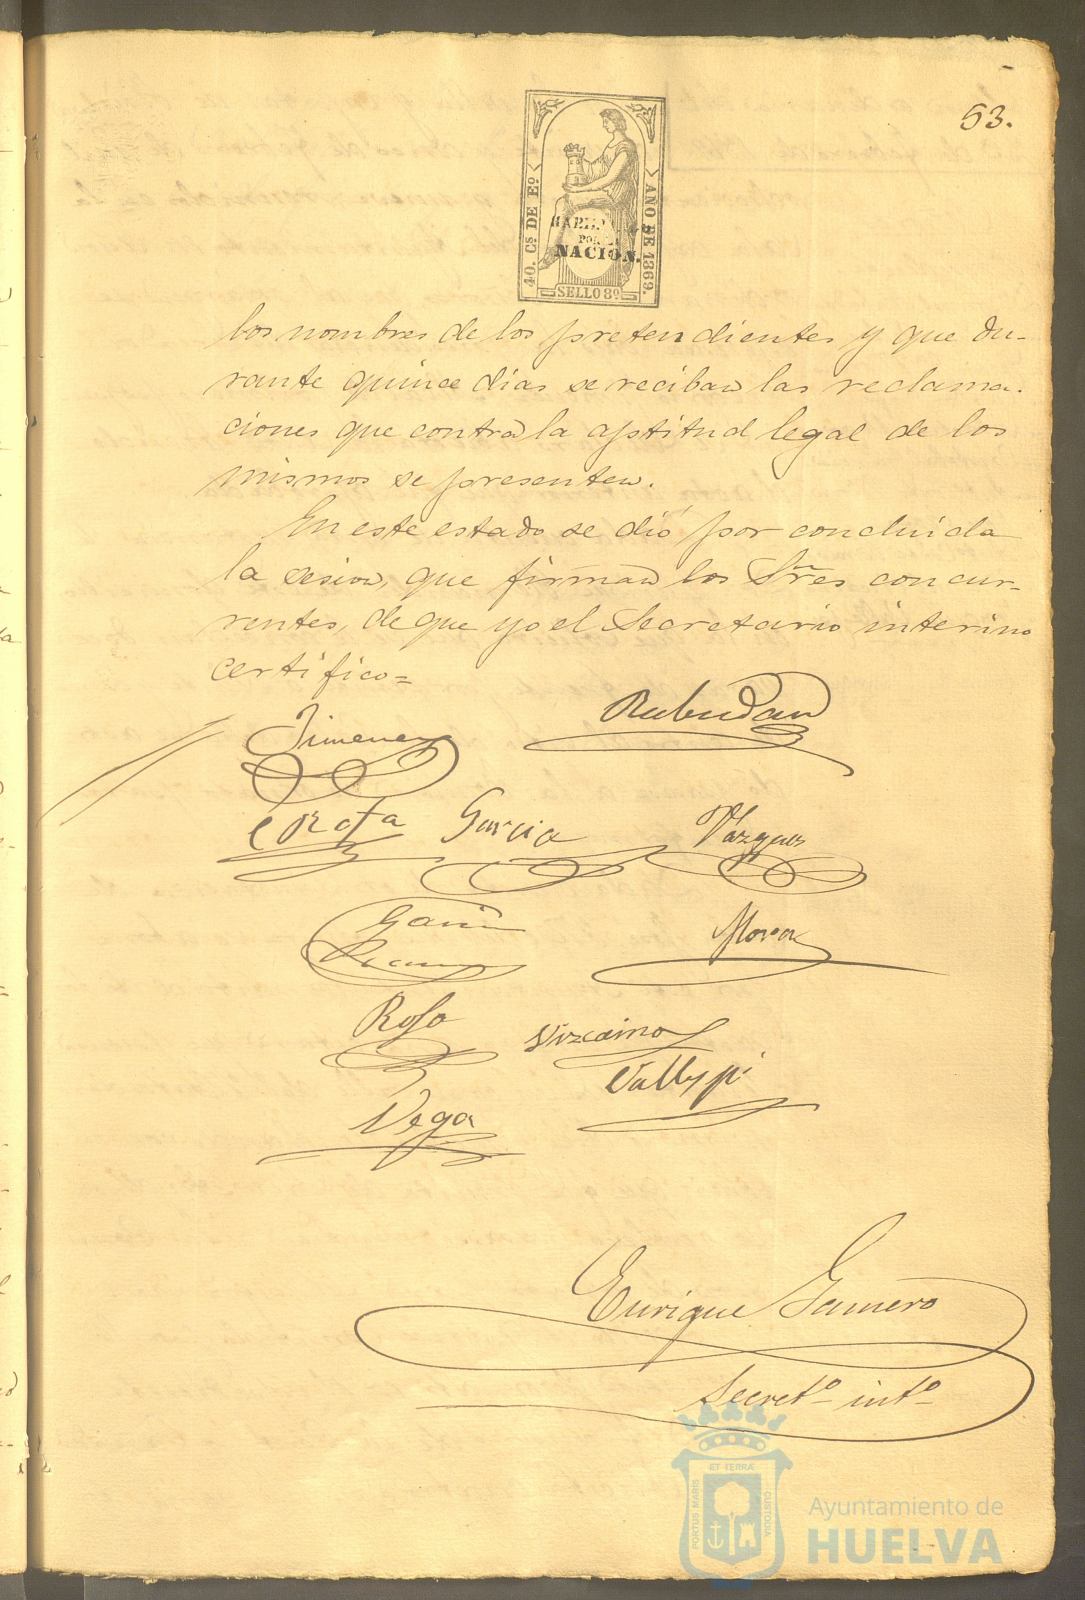 53.
40. Cs DE Eº
AÑO DE 1869.
POR
NACION.
SELLO 8º
los nombres de los pretendientes y que du-
rante quince dias se reciban las reclama-
ciones que contra la aptitud legal de los
mismos se presenten.
En este estado se dió por concluida
la sesion, que firman los Sres concur-
rentes, de que yo el Secretario interino
certifico=
Jimenez
Rota Garcia Vazquez
Garcia Mora
Rofo Vizcaino
Vega
Enrique Gamero
Secretº intº
ET TERRÆ
PORTUS MARIS
CUSTODIA
Ayuntamiento de
HUELVA